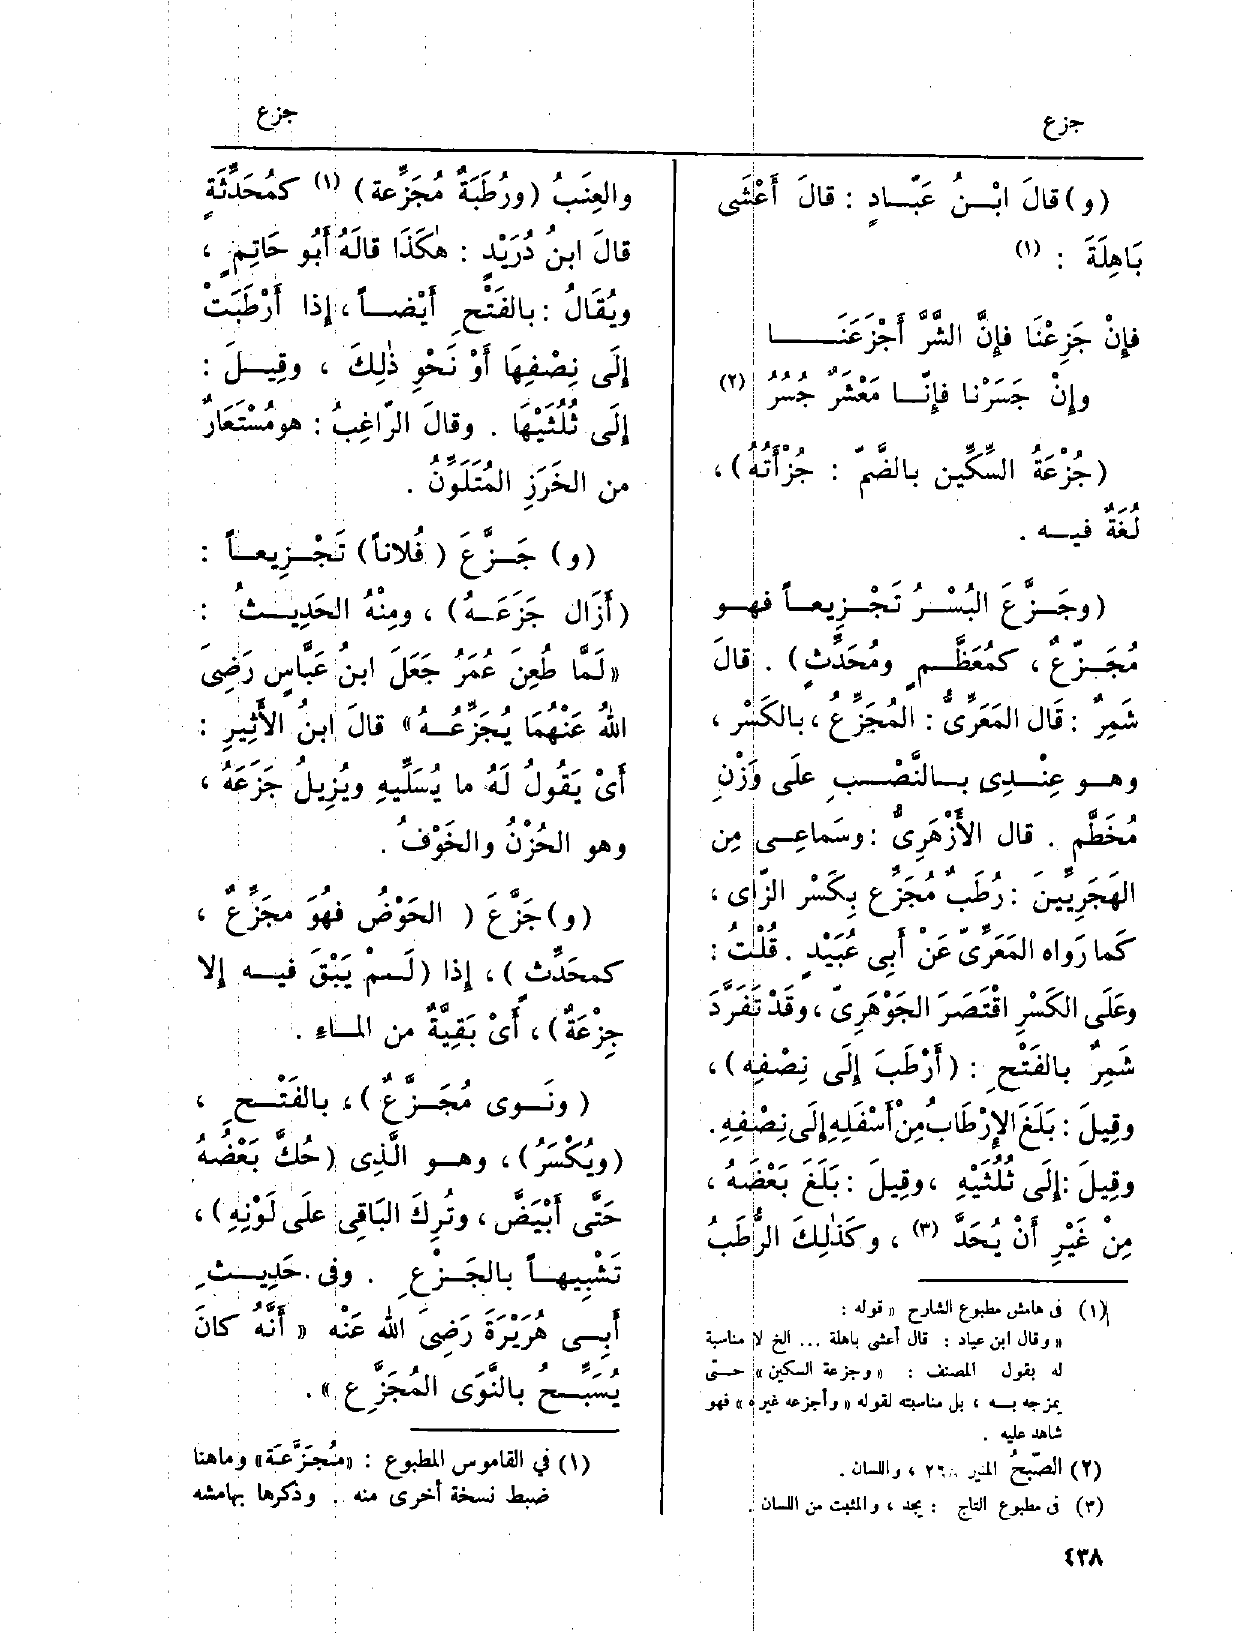 جزع
جزع
(و) قالَ ابْـنُ عَبّـادٍ : قالَ أَعْشَى
بَاهِلَةَ : (١)
فإِنْ جَزِعْنَا فإِنَّ الشَّرَّ أَجْزَعَنَــا
وإِنْ جَسَرْنا فإِنّـا مَعْشَرٌ جُسُرُ (٢)
(جُزْعَةُ السِّكِّين بالضَّمّ : جُزْأَتُهُ) ،
لُغَةٌ فيـه .
(وجَـزَّعَ البُسْـرُ تَجْـزِيعـاً فهـو
مُجَـزّعٌ ، كمُعَظَّـمٍ ومُحَدَّثٍ) . قالَ
شَمِرٌ : قَال المَعَرِّىُّ : المُجَزِّعُ ، بالكَسْرِ ،
وهـو عِنْـدِى بـالنَّصْـبِ عَلَى وَزْنِ
مُخَطَّمٍ . قال الأَزْهَرِىُّ : وسَماعِـى مِن
الهَجَرِيِّينَ : رُطَبٌ مُجَزِّع بِكَسْرِ الزّاى ،
كما رَواه المَعَرِّىّ عَنْ أَبِى عُبَيْدٍ . قُلْتُ :
وعَلَى الكَسْرِ اقْتَصَرَ الجَوْهَرِىّ ، وقَدْ تَفَرَّدَ
شَمِرٌ بالفَتْحِ : (أَرْطَبَ إِلَى نِصْفِه) ،
وقِيلَ : بَلَغَ الإِرْطَابُ مِنْ أَسْفَلِهِ إِلَى نِصْفِهِ .
وقِيلَ : إِلَى ثُلُثَيْهِ ، وقِيلَ : بَلَغَ بَعْضَه ،
مِنْ غَيْرِ أَنْ يُحَدَّ (٣) ، وكَذٰلِكَ الرُّطَبُ
(١) فى هامش مطبوع الشارح « قوله :
« وقال ابن عباد : قال أعشى باهلة ... الخ لا مناسبة
له بقول المصنف : « وجزعة السكين » حـتى
يمزجه بـه ، بل مناسبته لقوله « وأجزعه غيره » فهو
شاهد عليه .
(٢) الصّبحُ المنير ٢٦٠ ، واللسان .
(٣) فى مطبوع التاج : يجد ، والمثبت من اللسان .
٤٣٨
والعِنَبُ (ورُطَبَةٌ مُجَزِّعة) (١) كمُحَدِّثَةٍ
قالَ ابنُ دُرَيْدٍ : هٰكَذَا قالَهُ أَبُو حَاتِمٍ ،
ويُقَالُ : بالفَتْحِ أَيْضـاً ، إِذا أَرْطَبَتْ
إِلَى نِصْفِهَا أَوْ نَحْوِ ذٰلِكَ ، وقِيـلَ :
إِلَى ثُلُثَيْهَا . وقالَ الرّاغِبُ : هو مُسْتَعَارٌ
من الخَرَزِ المُتَلَوِّنُ .
(و) جَـزَّعَ (فُلاناً) تَجْـزِيعـاً :
(أَزَال جَزَعَـهُ) ، ومِنْهُ الحَدِيـثُ :
« لَمَّا طُعِنَ عُمَرُ جَعَلَ ابنُ عَبَّاسٍ رَضِىَ
اللهُ عَنْهُمَا يُجَزِّعُـهُ » قالَ ابنُ الأَثِيرِ :
أَىْ يَقُولُ لَهُ ما يُسَلِّيهِ ويُزِيلُ جَزَعَهُ ،
وهو الحُزْنُ والخَوْفُ .
(و) جَزَّعَ ( الحَوْضُ فهوَ مجَزِّعٌ ،
كمحَدِّثٍ ) ، إِذا (لَـمْ يَبْقَ فيـه إلا
جِزْعَةٌ) ، أَىْ بَقِيَّةٌ من المـاء .
( ونَـوى مُجَـزَّعٌ ) ، بالفَتْـحِ ،
(ويُكْسَرُ) ، وهـو الَّذِى (حُكَّ بَعْضُه
حَتَّى أبْيَضَّ ، وتُرِكَ البَاقِى علَى لَوْنِهِ) ،
تَشْبِيهـاً بالجَـزْعِ . وفى حَدِيـثِ
أَبِـى هُرَيْرَةَ رَضِىَ الله عَنْه « أَنَّه كانَ
يُسَبِّـحُ بالنَّوَى المُجَزَّعِ » .
(١) في القاموس المطبوع : « مُجَزَّعَة » وماهنا
ضبط نسخة أخرى منه . وذكرها بهامشه